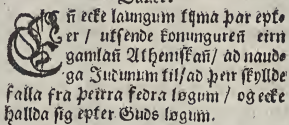 Eñ ecke laungum tyma þar epter
er / utsende konungureñ eirn
gamlañ Atheniskañ / ad naud⸗
ga Judunum til / ad þeir skyllde
falla fra þeirra fedraløgum / og ecke
hallda sig epter Guds løgum.